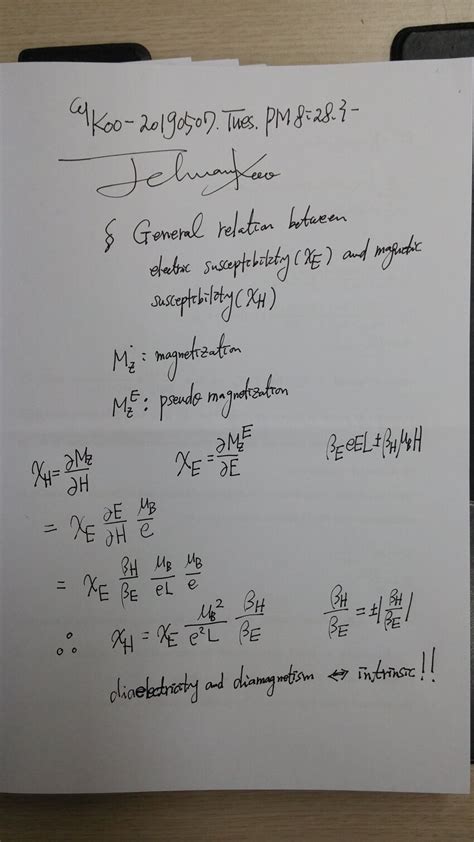 Koo-20190507. Tues. PM 8:28.3-
Jehwan Koo
§ General relation between
electric susceptibility (χ_E) and magnetic
susceptibility (χ_H)
M_z : magnetization
M_z^E : pseudo magnetization
χ_H = ∂M_z/∂H   χ_E = ∂M_z^E/∂E   β_E eEL ± |β_H| μ_B H
= χ_E ∂E/∂H μ_B/e
= χ_E β_H/β_E μ_B/eL μ_B/e
∴ χ_H = χ_E μ_B²/e²L β_H/β_E   β_H/β_E = ±|β_H/β_E|
dielectricity and diamagnetism ↔ intrinsic!!